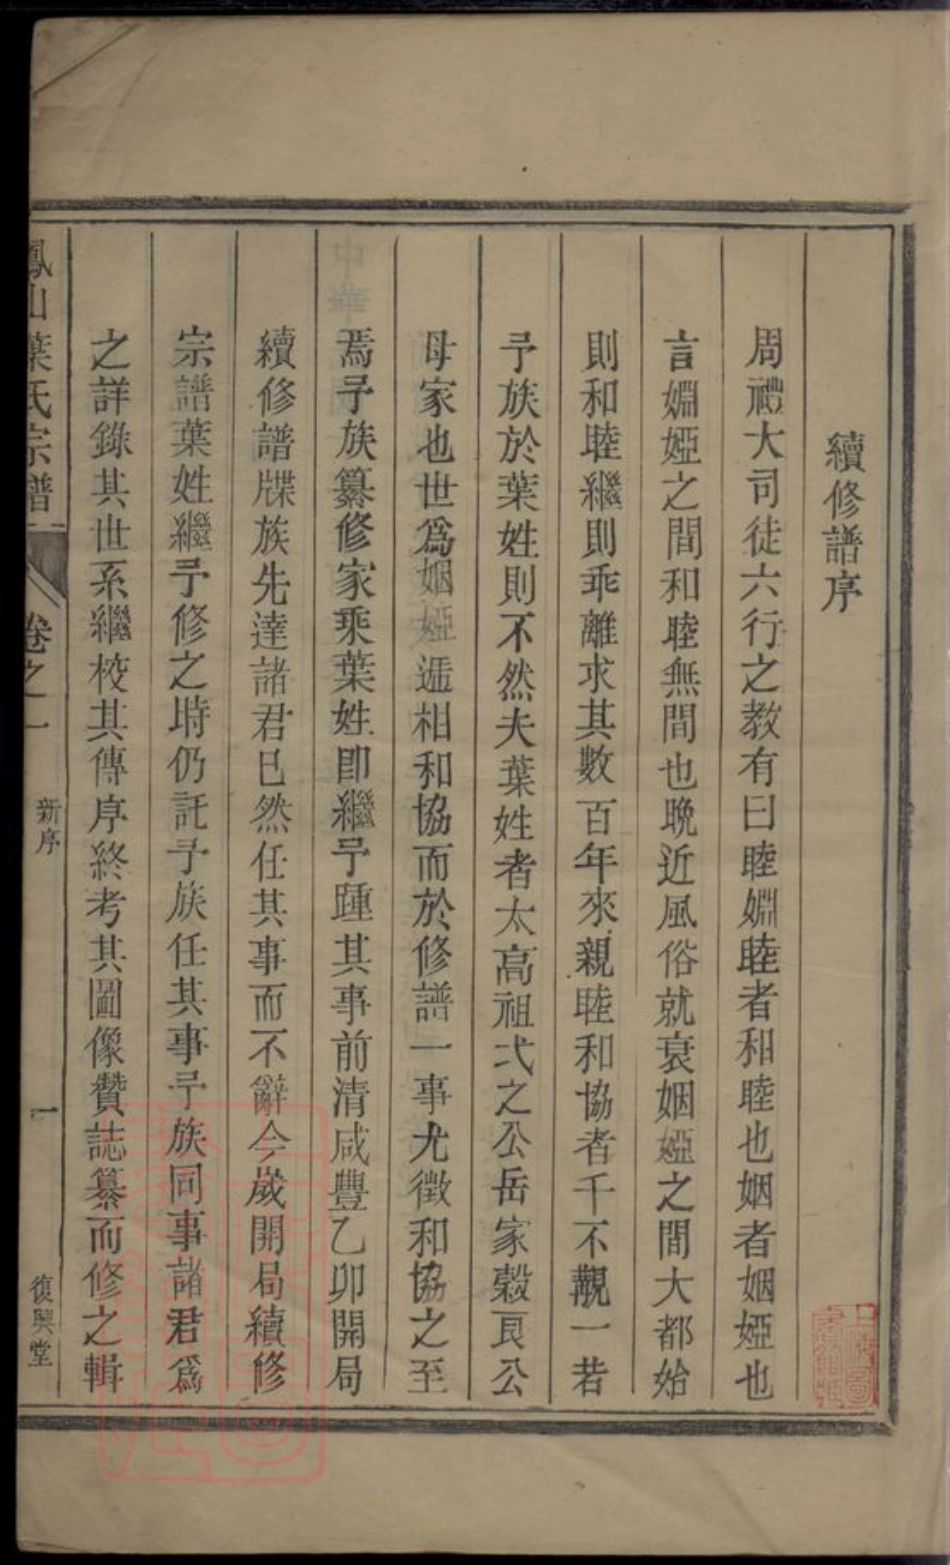 續修譜序
周禮大司徒六行之教有曰睦婣睦者和睦也姻者姻婭也
言婣婭之間和睦無間也晚近風俗就衰姻婭之間大都始
則和睦繼則乖離求其數百年來親睦和協者千不覯一若
予族於葉姓則不然夫葉姓者太高祖弌之公岳家穀艮公
母家也世爲姻婭遞相和協而於修譜一事尤徵和協之至
焉予族纂修家乘葉姓卽繼予踵其事前清咸豐乙卯開局
續修譜牒族先達諸君已然任其事而不辭今歲開局續修
宗譜葉姓繼予修之時仍託予族任其事予族同事諸君爲
之詳錄其世系繼校其傳序終考其圖像贊誌纂而修之輯
鳳山葉氏宗譜 卷之一 新序 一 復興堂